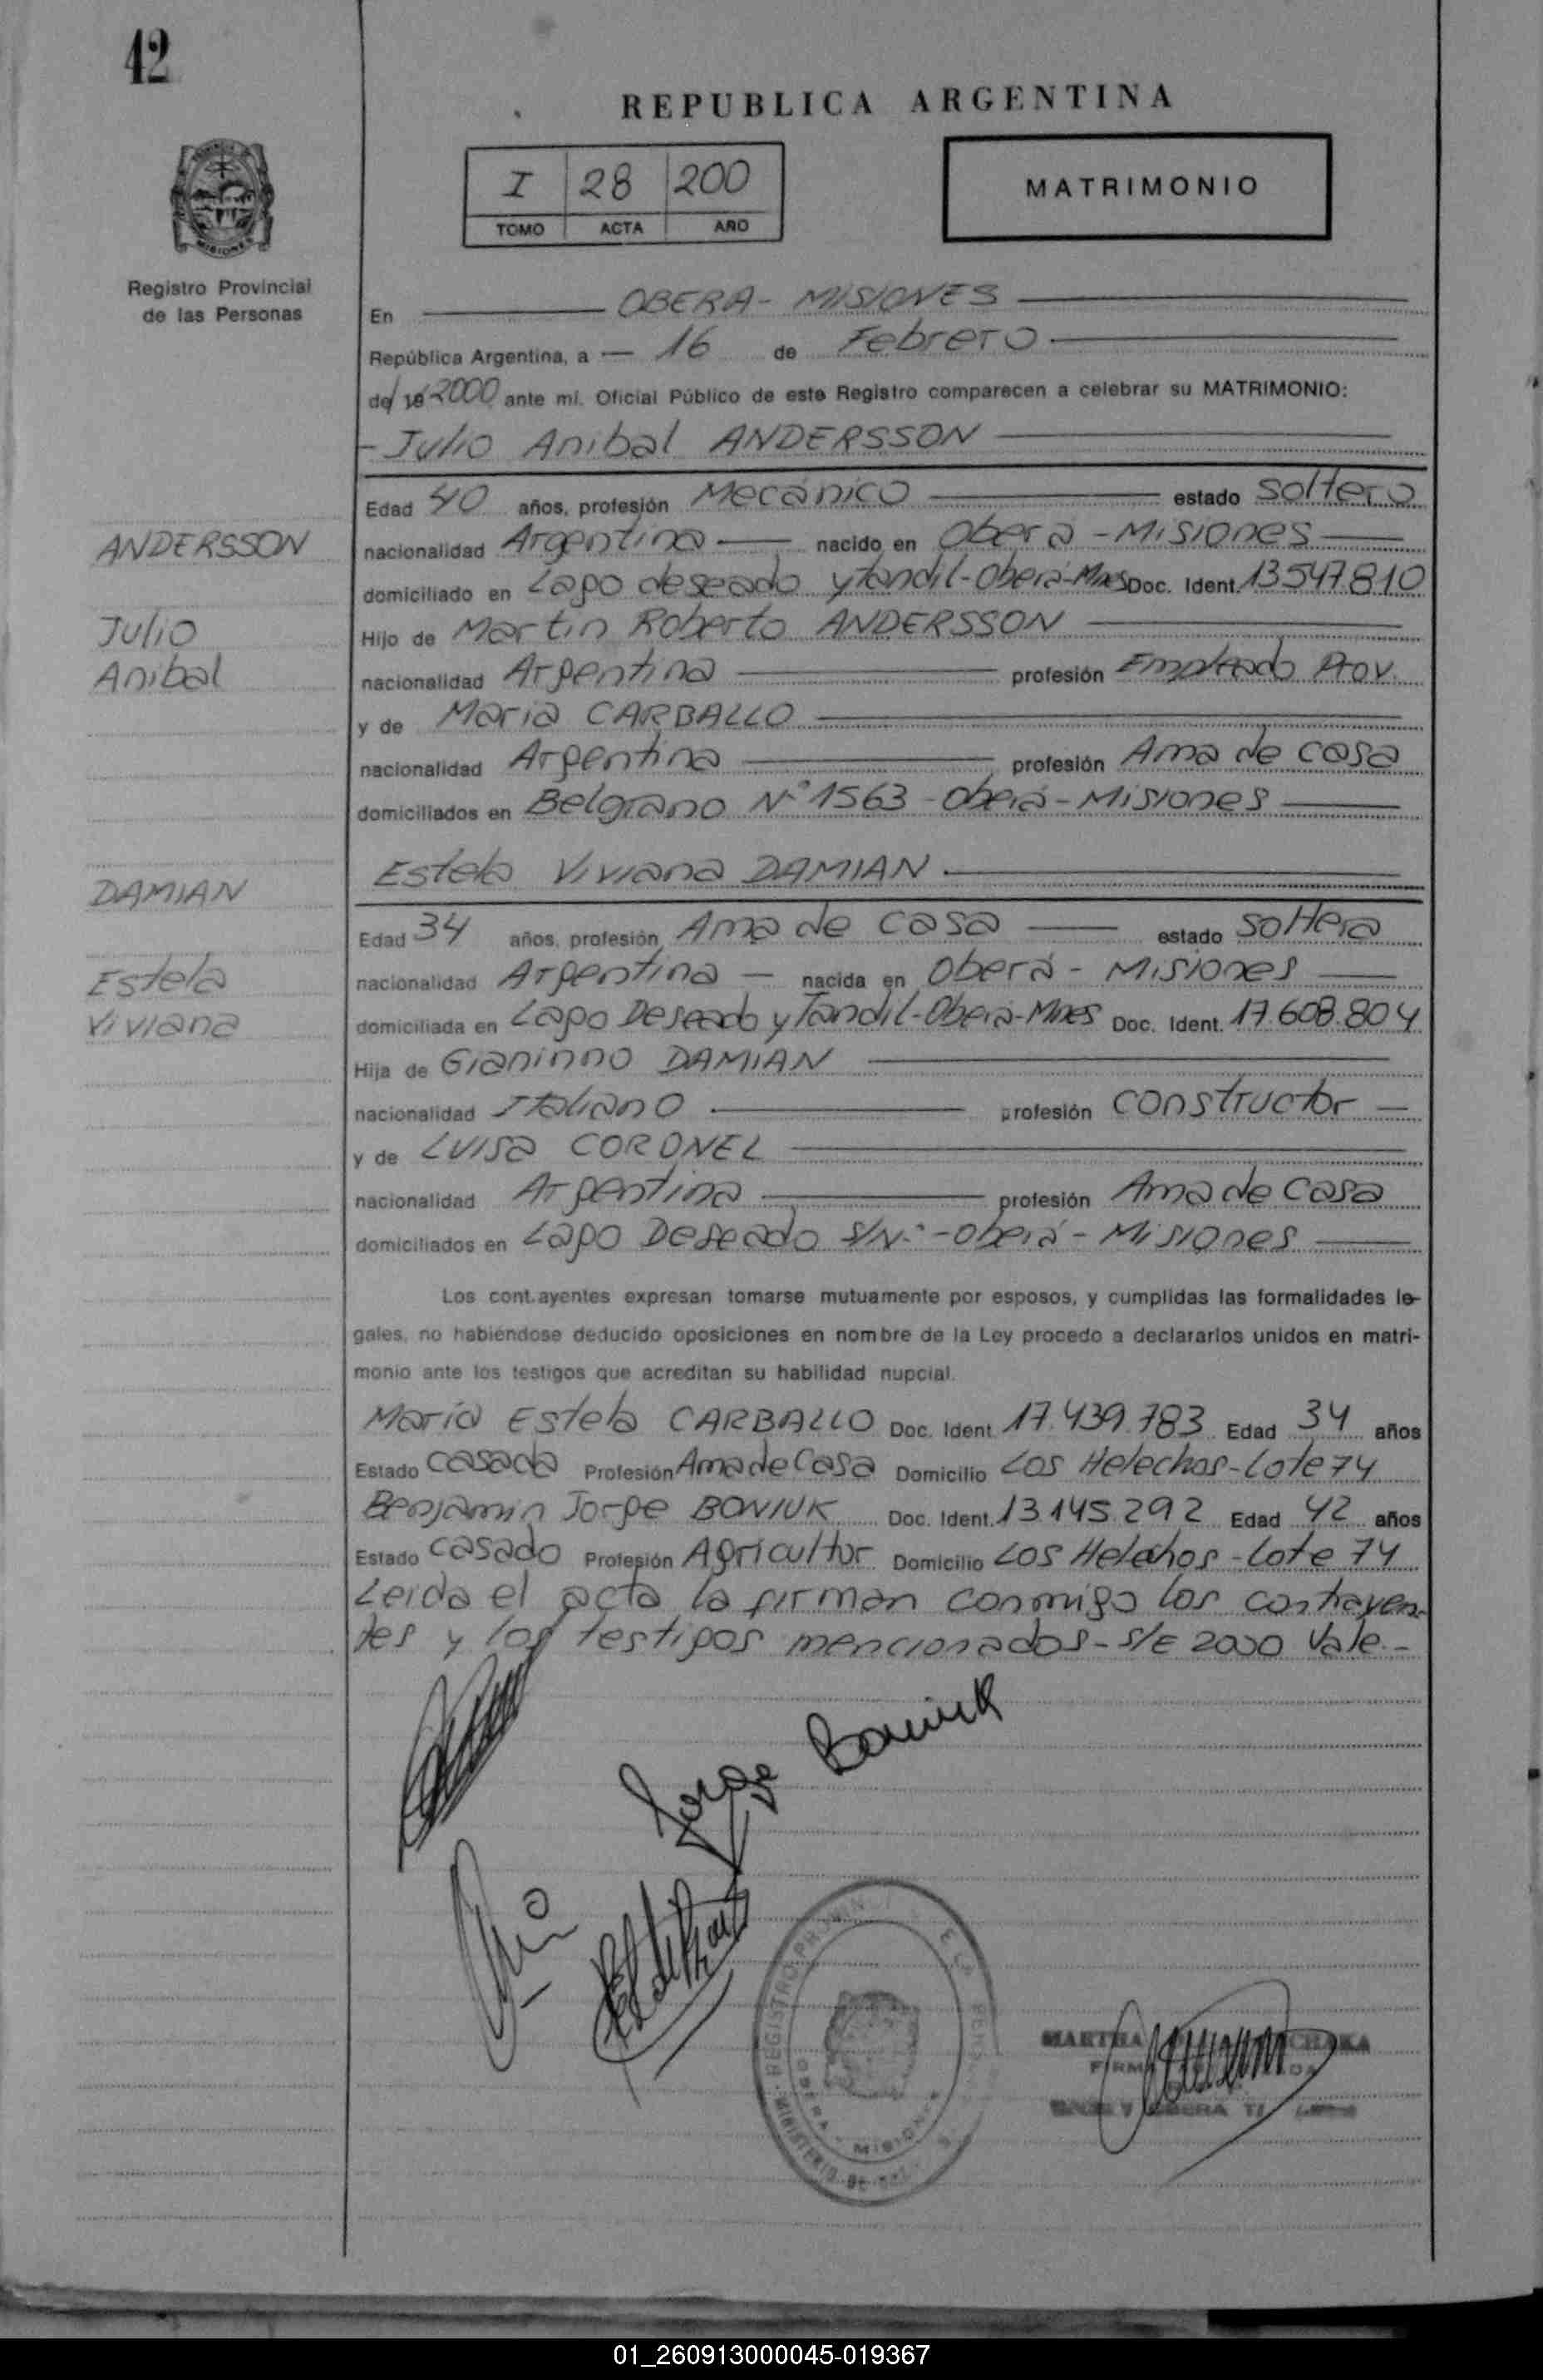 42
REPUBLICA ARGENTINA
I 28 200
TOMO ACTA AÑO
MATRIMONIO
MISIONES
Registro Provincial
de las Personas
En OBERA - MISIONES
República Argentina, a 16 de Febrero
del 19 2000 ante mí. Oficial Público de este Registro comparecen a celebrar su MATRIMONIO:
- Julio Anibal ANDERSSON
Edad 40 años, profesión Mecánico estado Soltero
ANDERSSON
nacionalidad Argentina nacido en Oberá - Misiones
domiciliado en Lago deseado y Tandil - Oberá - Mnes Doc. Ident. 13.547.810
Julio
Hijo de Martin Roberto ANDERSSON
Anibal
nacionalidad Argentina profesión Empleado Prov.
y de Maria CARBALLO
nacionalidad Argentina profesión Ama de casa
domiciliados en Belgrano N° 1563 - Oberá - Misiones
Estela Viviana DAMIAN
DAMIAN
Edad 34 años, profesión Ama de casa estado Soltera
Estela
nacionalidad Argentina - nacida en Oberá - Misiones
Viviana
domiciliada en Lago Deseado y Tandil - Oberá - Mnes Doc. Ident. 17.608.804
Hija de Gianinno DAMIAN
nacionalidad Italiano profesión constructor
y de LUISA CORONEL
nacionalidad Argentina profesión Ama de Casa
domiciliados en Lago Deseado S/N° - Oberá - Misiones
Los cont.ayentes expresan tomarse mutuamente por esposos, y cumplidas las formalidades le-
gales, no habiéndose deducido oposiciones en nombre de la Ley procedo a declararlos unidos en matri-
monio ante los testigos que acreditan su habilidad nupcial.
María Estela CARBALLO Doc. Ident. 17.439.783 Edad 34 años
Estado Casada Profesión Ama de Casa Domicilio Los Helechos - Lote 74
Benjamin Jorge BONIUK Doc. Ident. 13.145.292 Edad 42 años
Estado Casado Profesión Agricultor Domicilio Los Helechos - Lote 74
Leida el acta la firman conmigo los contrayen-
tes y los testigos mencionados - S/E 2000 Vale.-
Jorge Boniuk
REGISTRO
OBERA - MISIONES
MINISTERIO DE
MARTHA
01_260913000045-019367